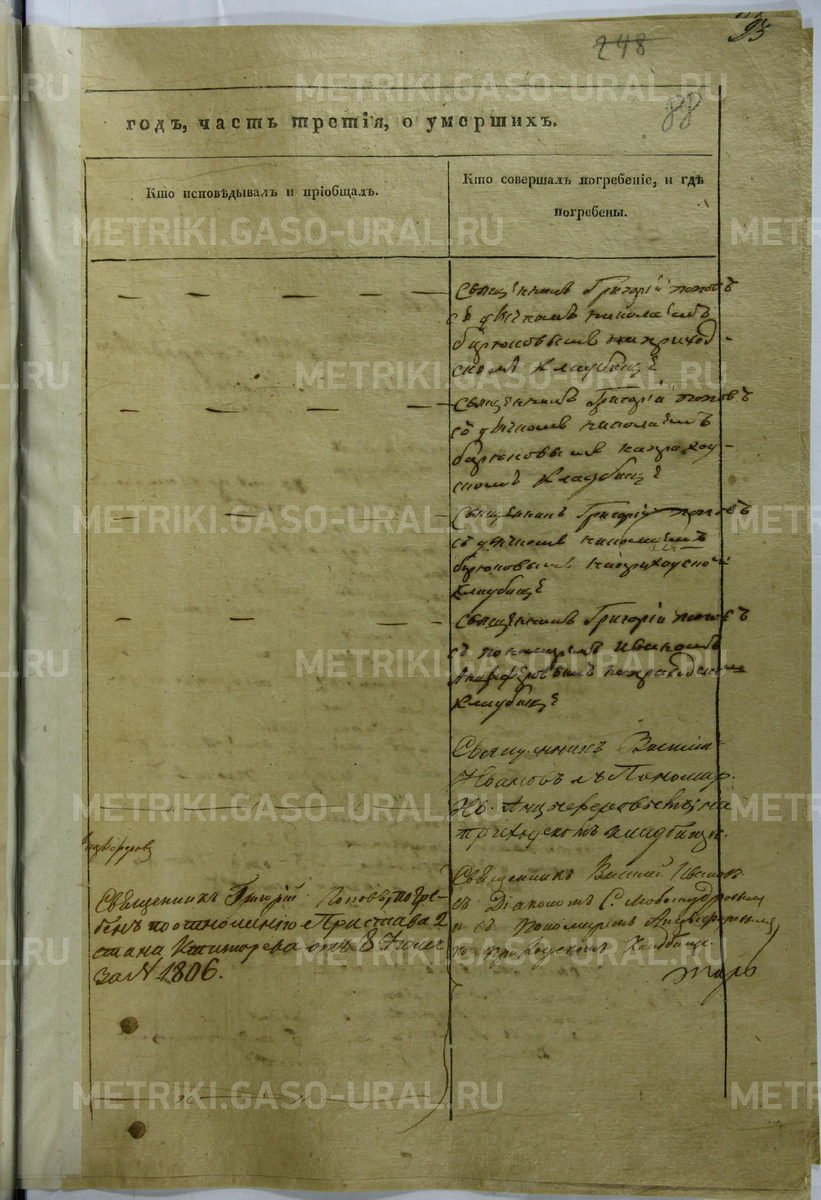 248
93
88
годъ, часть третія, о умершихъ.
Кто исповѣдывалъ и пріобщалъ.
Кто совершалъ погребеніе, и гдѣ
погребены.
Священникъ Григорій Поповъ
съ дьячкомъ Николаемъ
Бирюковымъ на приход-
скомъ кладбищѣ
Священникъ Григорій Поповъ
съ дьячкомъ Николаемъ
Бирюковымъ на приход-
скомъ кладбищѣ
Священникъ Григорій Поповъ
съ дьячкомъ Николаемъ
Бирюковымъ на приходском
кладбищѣ
Священникъ Григорій Поповъ
съ пономаремъ Иваномъ
на приходском
кладбищѣ
Священникъ Василій
Ивановъ съ Пономар.
на
приходскомъ кладбищѣ.
Священникъ Григорій Поповъ, погре-
бенъ по отношенію Пристава 2
стана отъ 8 Іюля
за № 1806.
Священникъ Василій Ивановъ
съ Діакономъ
и съ Пономаремъ
на приходскомъ кладбищѣ.
METRIKI.GASO-URAL.RU